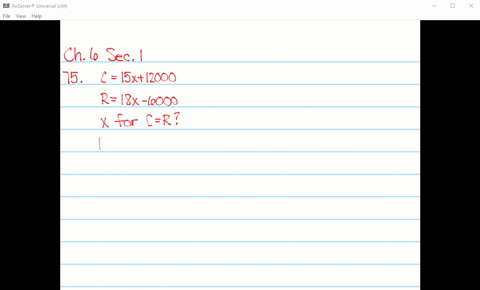 AirServer® Universal (x64)
File View Help
Ch. 6 Sec. 1
75. C = 15x+12000
R = 18x-6000
x for C=R?